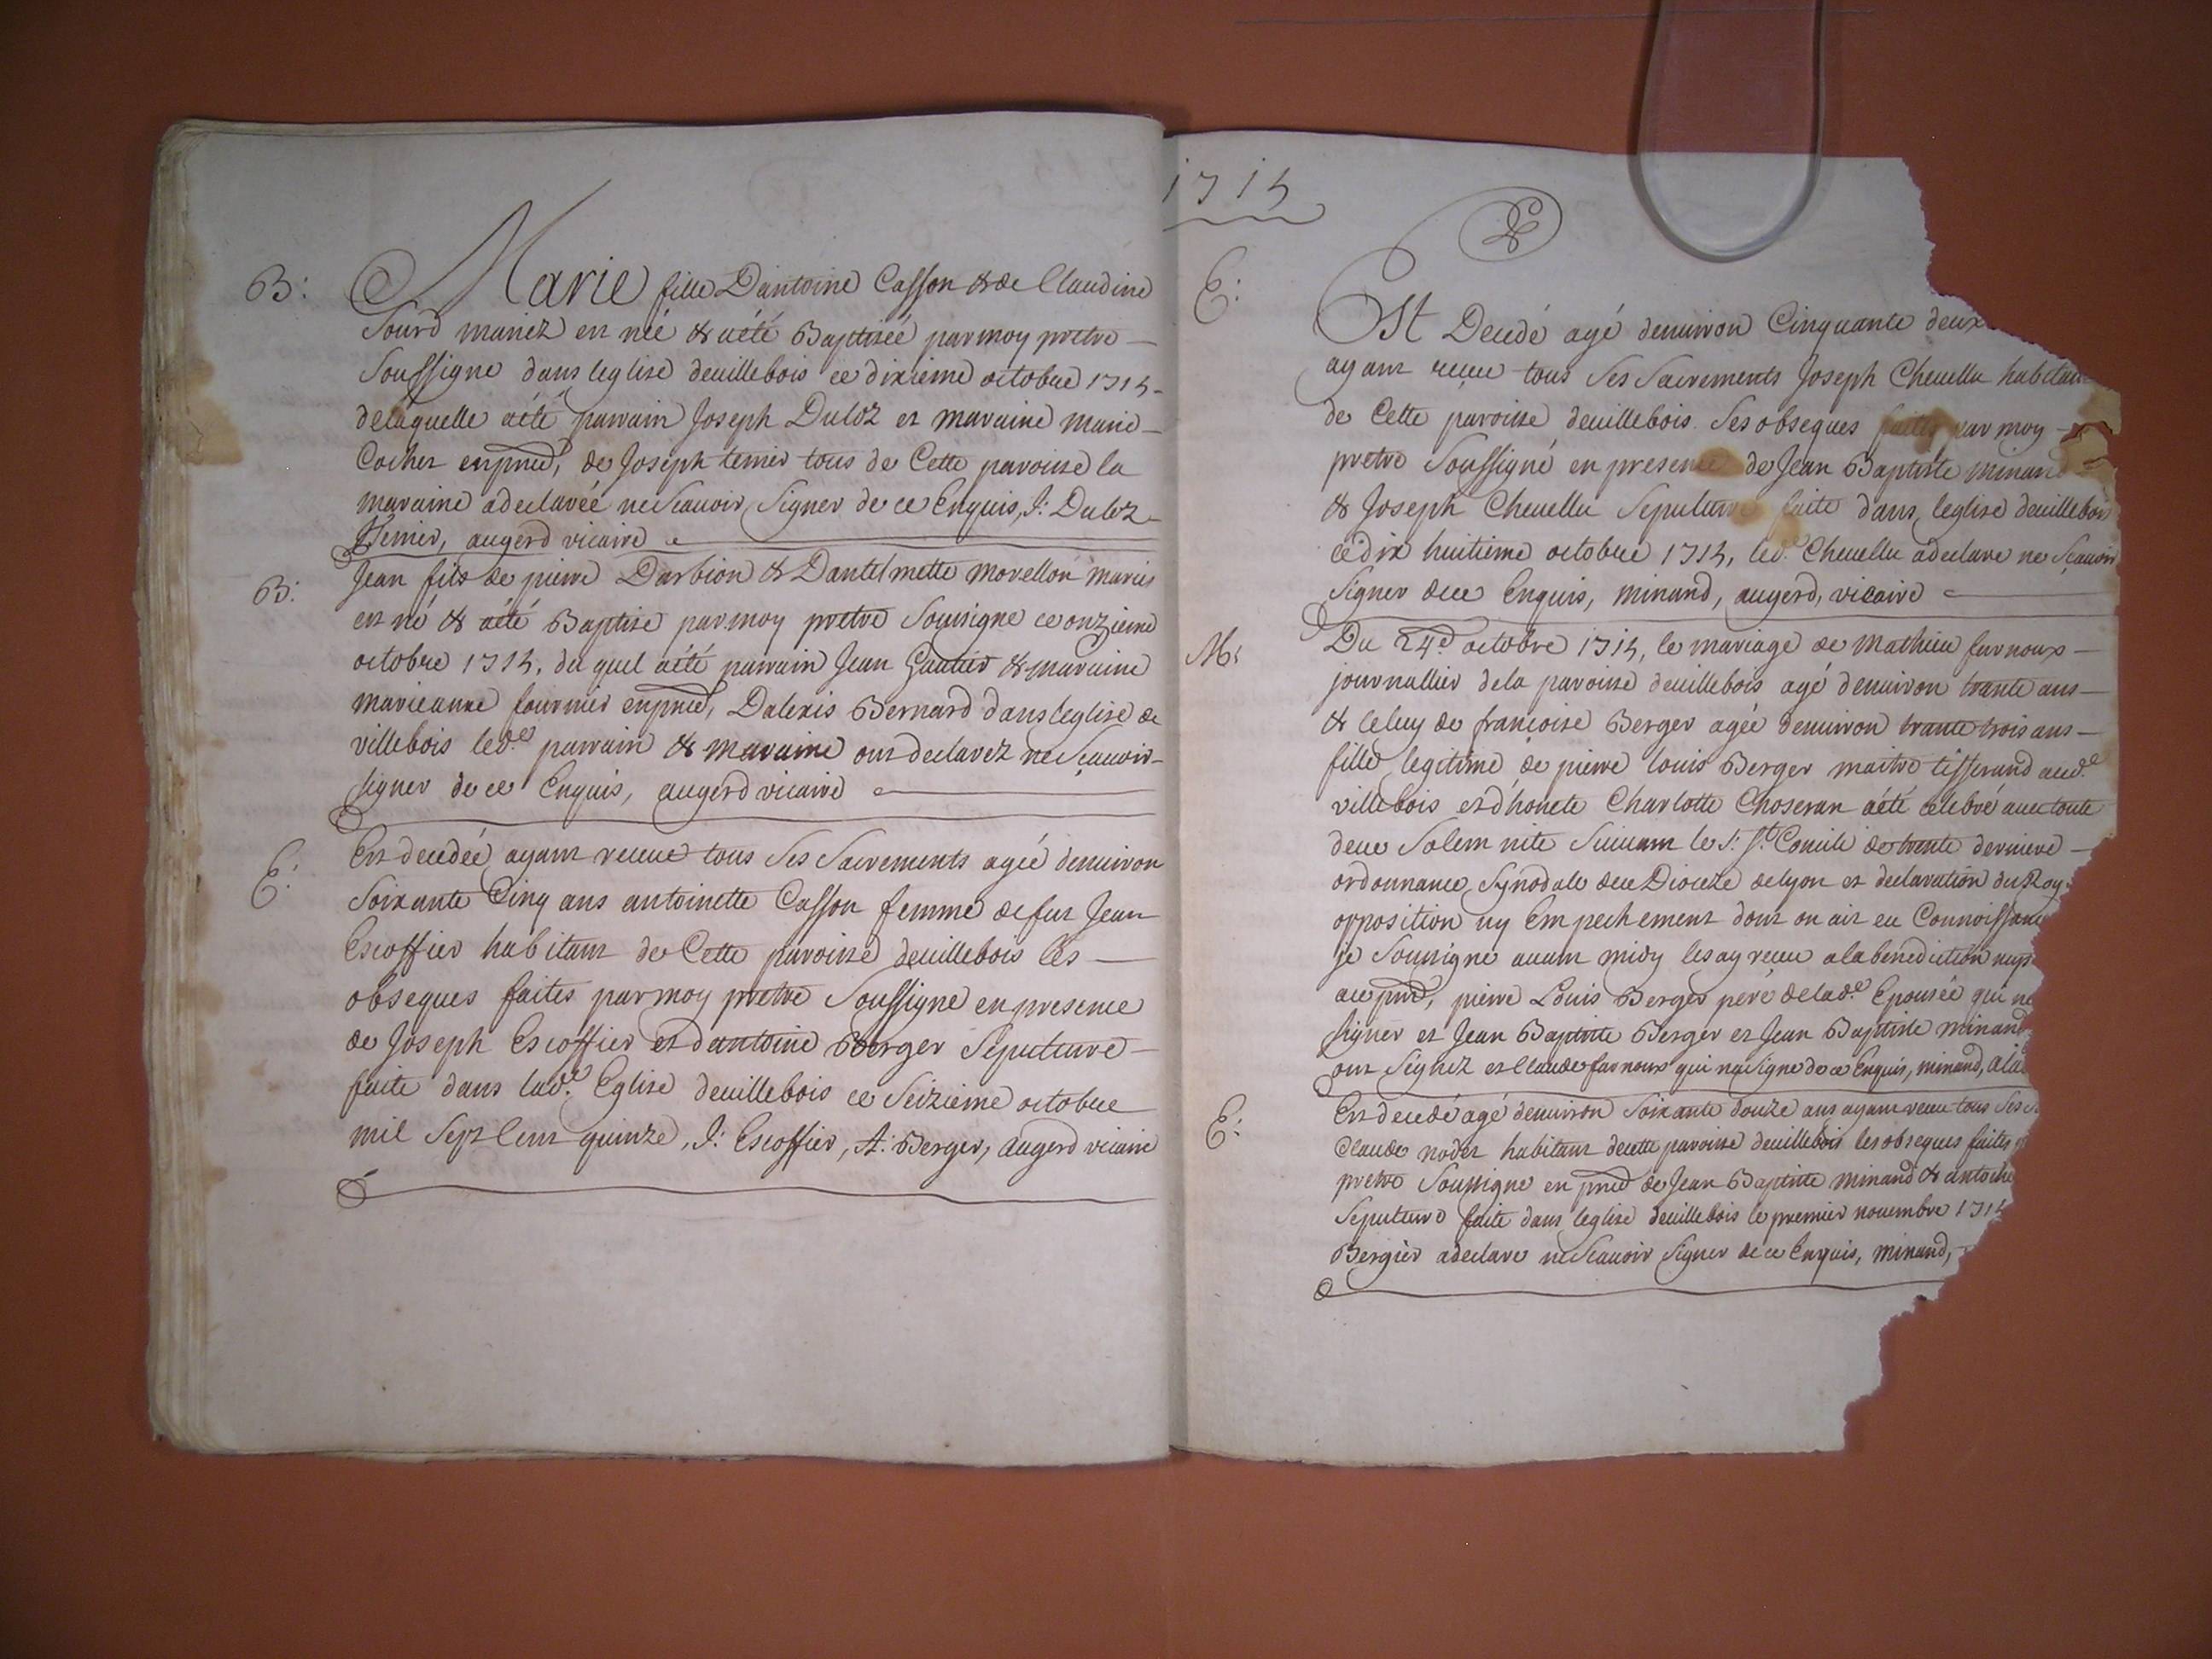 1715
B: Marie fille Dantoine Casson & de Claudine
Sourd mariez est née & a été Baptizeé par moy pretre
Soussigne dans leglise deuillebois ce dixieme octobre 1715
de laquelle a été parrain Joseph Duloz et maraine marie
Cochet en pnce, de Joseph temer tous de Cette paroisse la
maraine a declareé ne Scauoir Signer de ce Enquis, J: Duloz
Augerd vicaire
B: Jean fils de pierre Darbion & Dantelmette Morellon mariés
est né & a été Baptise par moy pretre Soussigne ce onzieme
octobre 1715. du quel a été parrain Jean Gautier & maraine
marieanne fournier en pnce, Dalexis Bernard dans leglise de
villebois led.es parrain & maraine ont declarez ne Scauoir
signer de ce Enquis, augerd vicaire
E: Est decedeé ayant receue tous Ses Sacrements ageé denuiron
Soixante Cinq ans antoinette Casson femme de fut Jean
Escoffier habitant de Cette paroisse deuillebois les
obseques faites par moy pretre Soussigne en presence
de Joseph Escoffier et dantoine Berger Sepulture
faite dans lad.e Eglise deuillebois ce Seizieme octobre
mil Sept Cent quinze, J: Escoffier, A: Berger, Augerd vicaire
E: Est Decedé agé denuiron Cinquante deux
ayant receue tous Ses Sacrements Joseph Cheuellu habitan
de Cette paroisse deuillebois. Ses obseques faites par moy
pretre Soussigné en presence de Jean Baptiste minand
& Joseph Cheuellu Sepulture faite dans leglise deuillebois
ce dix huitieme octobre 1715, led.e Cheuellu a declare ne Scauoir
Signer de ce Enquis, minand, augerd, vicaire
M: Du 24.e octobre 1715, le mariage de Mathieu farnoux
journallier de la paroisse deuillebois agé denuiron trante ans
& celuy de francoise Berger ageé denuiron trante trois ans
fille legitime de pierre louis Berger maitre tisserand aud.e
villebois et d'honete Charlotte Choseran a été celebré auec toute
deue Solemnite Suiuant le S: St. Concile de trente derniere
ordonnance Synodale dece Dioceze de lyon et declaration du Roy
opposition ny Empechement dont on ait eu Connoissanc
je Soussigne auant midy les ay receu a la benediction nup
au pnce, pierre Louis Berger pere de lad.e Epouseé qui ne
signer et Jean Baptiste Berger et Jean Baptiste minand
ont Signez et Claude farnoux qui na Signe de ce Enquis, minand,
E: Est decedé agé denuiron Soixante douze ans ayant receu tous Ses
Claude nodet habitant de cette paroisse deuillebois les obseques faites
pretre Soussigne en pnce de Jean Baptiste minand & antoine
Sepulture faite dans leglise deuillebois le premier nouembre 1715
Bergier a declare ne Scauoir Signer de ce Enquis, minand,